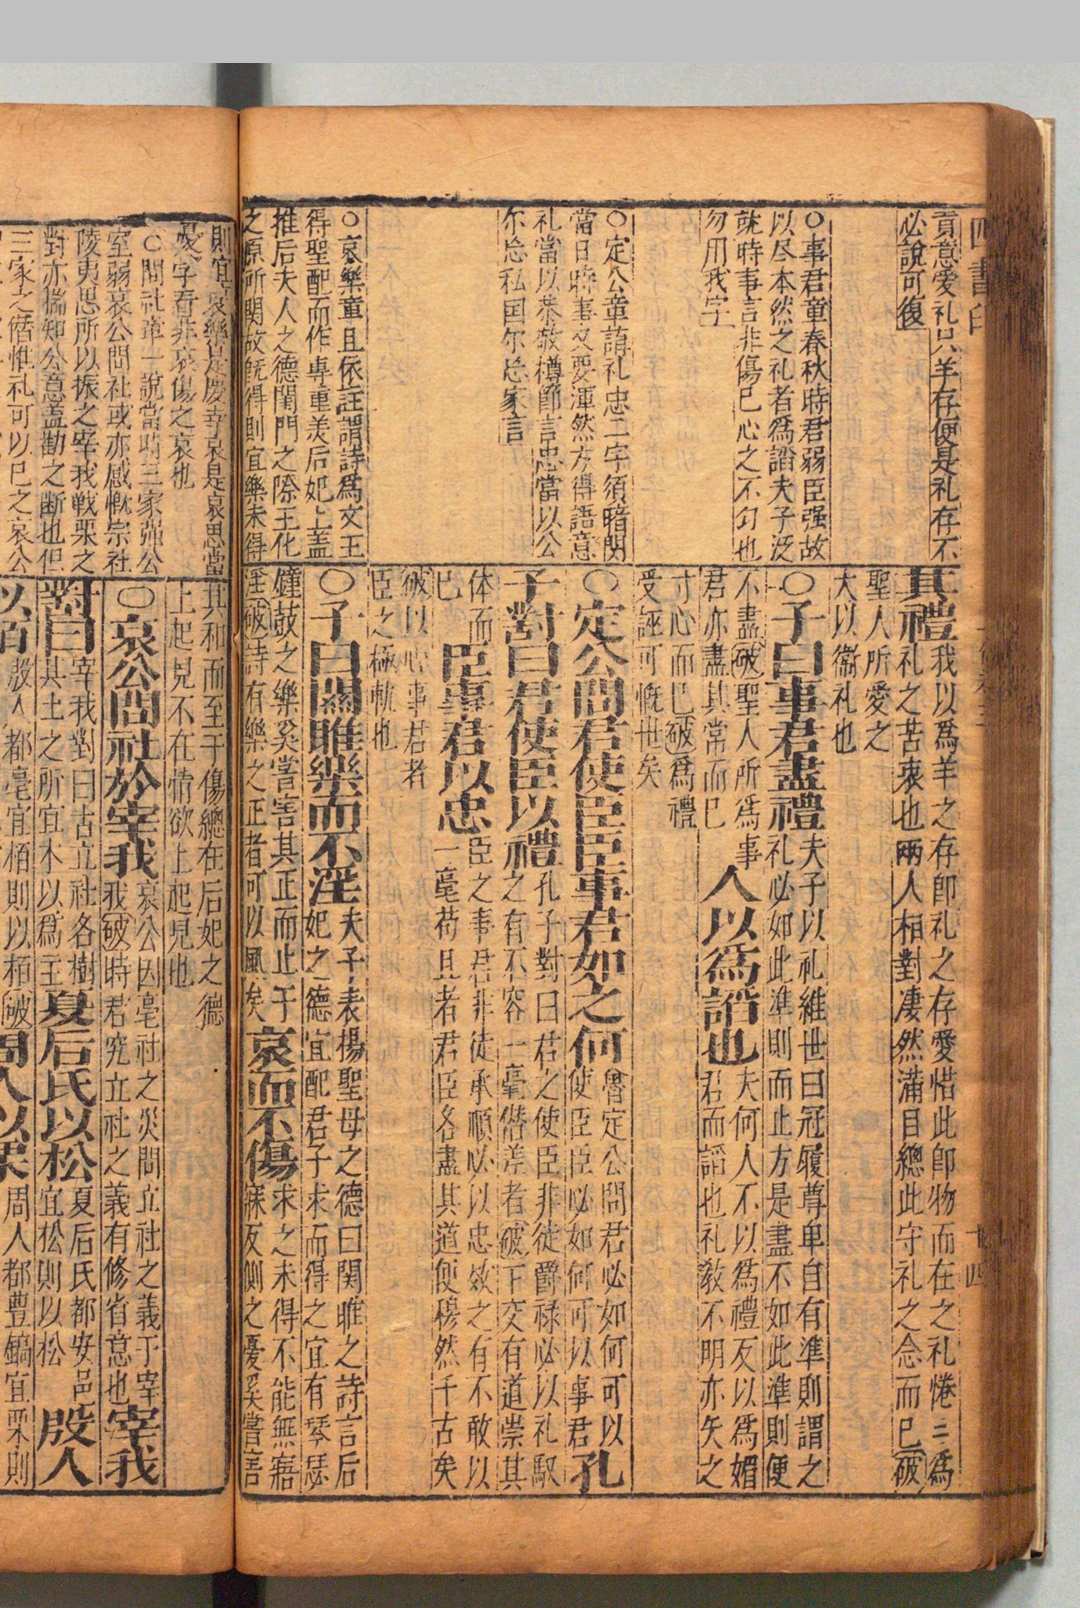 四書
貢意愛礼只羊存便是礼存不
必說可復
○事君章春秋時君弱臣强故
以尽本然之礼者爲謟夫子泛
就時事言非傷已心之不匀也
勿用我字
○定公章講礼忠二字須暗関
當日時事又要渾然方得語意
礼當以恭敬樽節言忠當以公
尔忘私国尔忘家言
○哀樂章且依註謂詩爲文王
得聖配而作專重美后妃上蓋
推后夫人之德閨門之際王化
之原所関故旣得則宜樂未得
其禮我以爲羊之存卽礼之存愛惜此卽物而在之礼惓三爲
礼之苦衷也兩人相對凄然滿目總此守礼之念而已破
聖人所愛之
大以衞礼也
○子曰事君盡禮夫子以礼維世曰冠履尊卑自有準則謂之
礼必如此準則而止方是盡不如此準則便
不盡破聖人所爲事
君亦盡其常而已
人以爲謟也夫何人不以爲禮反以爲媚
君而謟也礼敎不明亦矢之
寸心而已破爲禮
受誣可慨世矣
○定公問君使臣臣事君如之何魯定公問君必如何可以
使臣臣必如何可以事君孔
子對曰君使臣以禮孔子對曰君之使臣非徒爵祿必以礼馭
之有不容一毫僭差者破下交有道崇其
体而
已
臣事君以忠臣之事君非徒承順必以忠效之有不敢以
一毫苟且者君臣各盡其道便穆然千古矣
破以心事君者
臣之極軌也
○子曰關雎樂而不淫夫子表楊聖母之德曰関雎之詩言后
妃之德宜配君子求而得之宜有琴瑟
鐘鼓之樂奚嘗害其正而止于
淫破詩有樂之正者可以風矣
哀而不傷求之未得不能無寤
寐反側之憂奚嘗害
則宜哀樂是慶幸哀是哀思當
憂字看非哀傷之哀也
○問社章一說當時三家强公
室弱哀公問社或亦感慨宗社
陵夷思所以振之宰我戰栗之
對亦揣知公意盖勸之断也但
三家之僭惟礼可以已之哀公
其和而至于傷總在后妃之德
上起見不在情欲上起見也
○哀公問社於宰我哀公因亳社之災問立社之義于宰
我破時君究立社之義有修省意也宰我
對曰宰我對曰古立社各樹
其土之所宜木以爲主
夏后氏以松夏后氏都安邑
宜松則以松
殷人
以栢殷人都亳宜栢則以栢破
周人以栗周人都豊鎬宜栗則